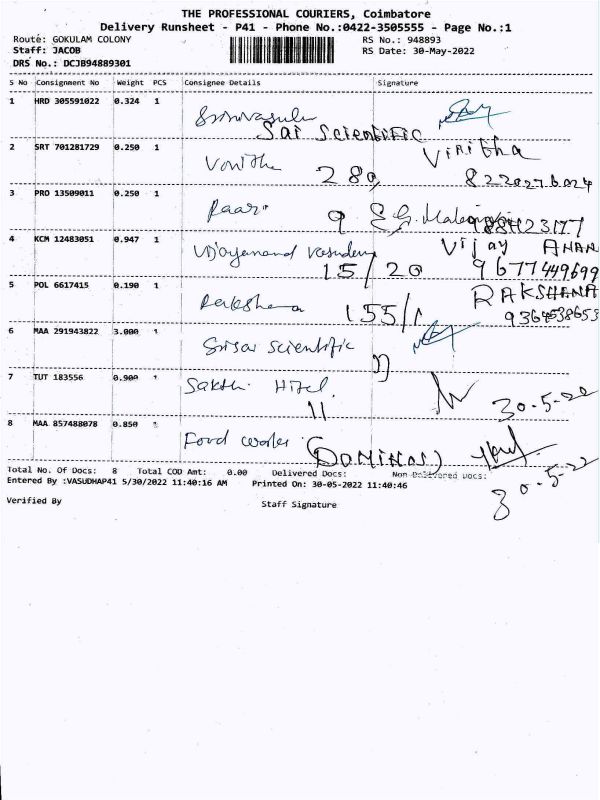 THE PROFESSIONAL COURIERS, Coimbatore
Delivery Runsheet - P41 - Phone No.:0422-3505555 - Page No.:1
Route: GOKULAM COLONY RS No.: 948893
Staff: JACOB RS Date: 30-May-2022
DRS No.: DCJB94889301
S No Consignment No Weight PCS Consignee Details Signature
1 HRD 305591022 0.324 1 Srinivasulu
Sai Scientific
2 SRT 701281729 0.250 1 Vinitha
28a 8220276024
3 PRO 13509011 0.250 1
9
4 KCM 12483051 0.947 1 Vijayanand Vasudev Vijay ANAN
15/20 9677449699
5 POL 6617415 0.190 1 Rakshana RAKSHANA
155/1 9364538653
6 MAA 291943822 3.000 1 Srisai scientific
7 TUT 183556 0.900 1 Sakthi
11 30-5-22
8 MAA 857488078 0.850 Food
(DOMINOS)
Total No. Of Docs: 8 Total COD Amt: 0.00 Delivered Docs: Non-Delivered Docs:
Entered By :VASUDHAP41 5/30/2022 11:40:16 AM Printed On: 30-05-2022 11:40:46
30-5-22
Verified By Staff Signature